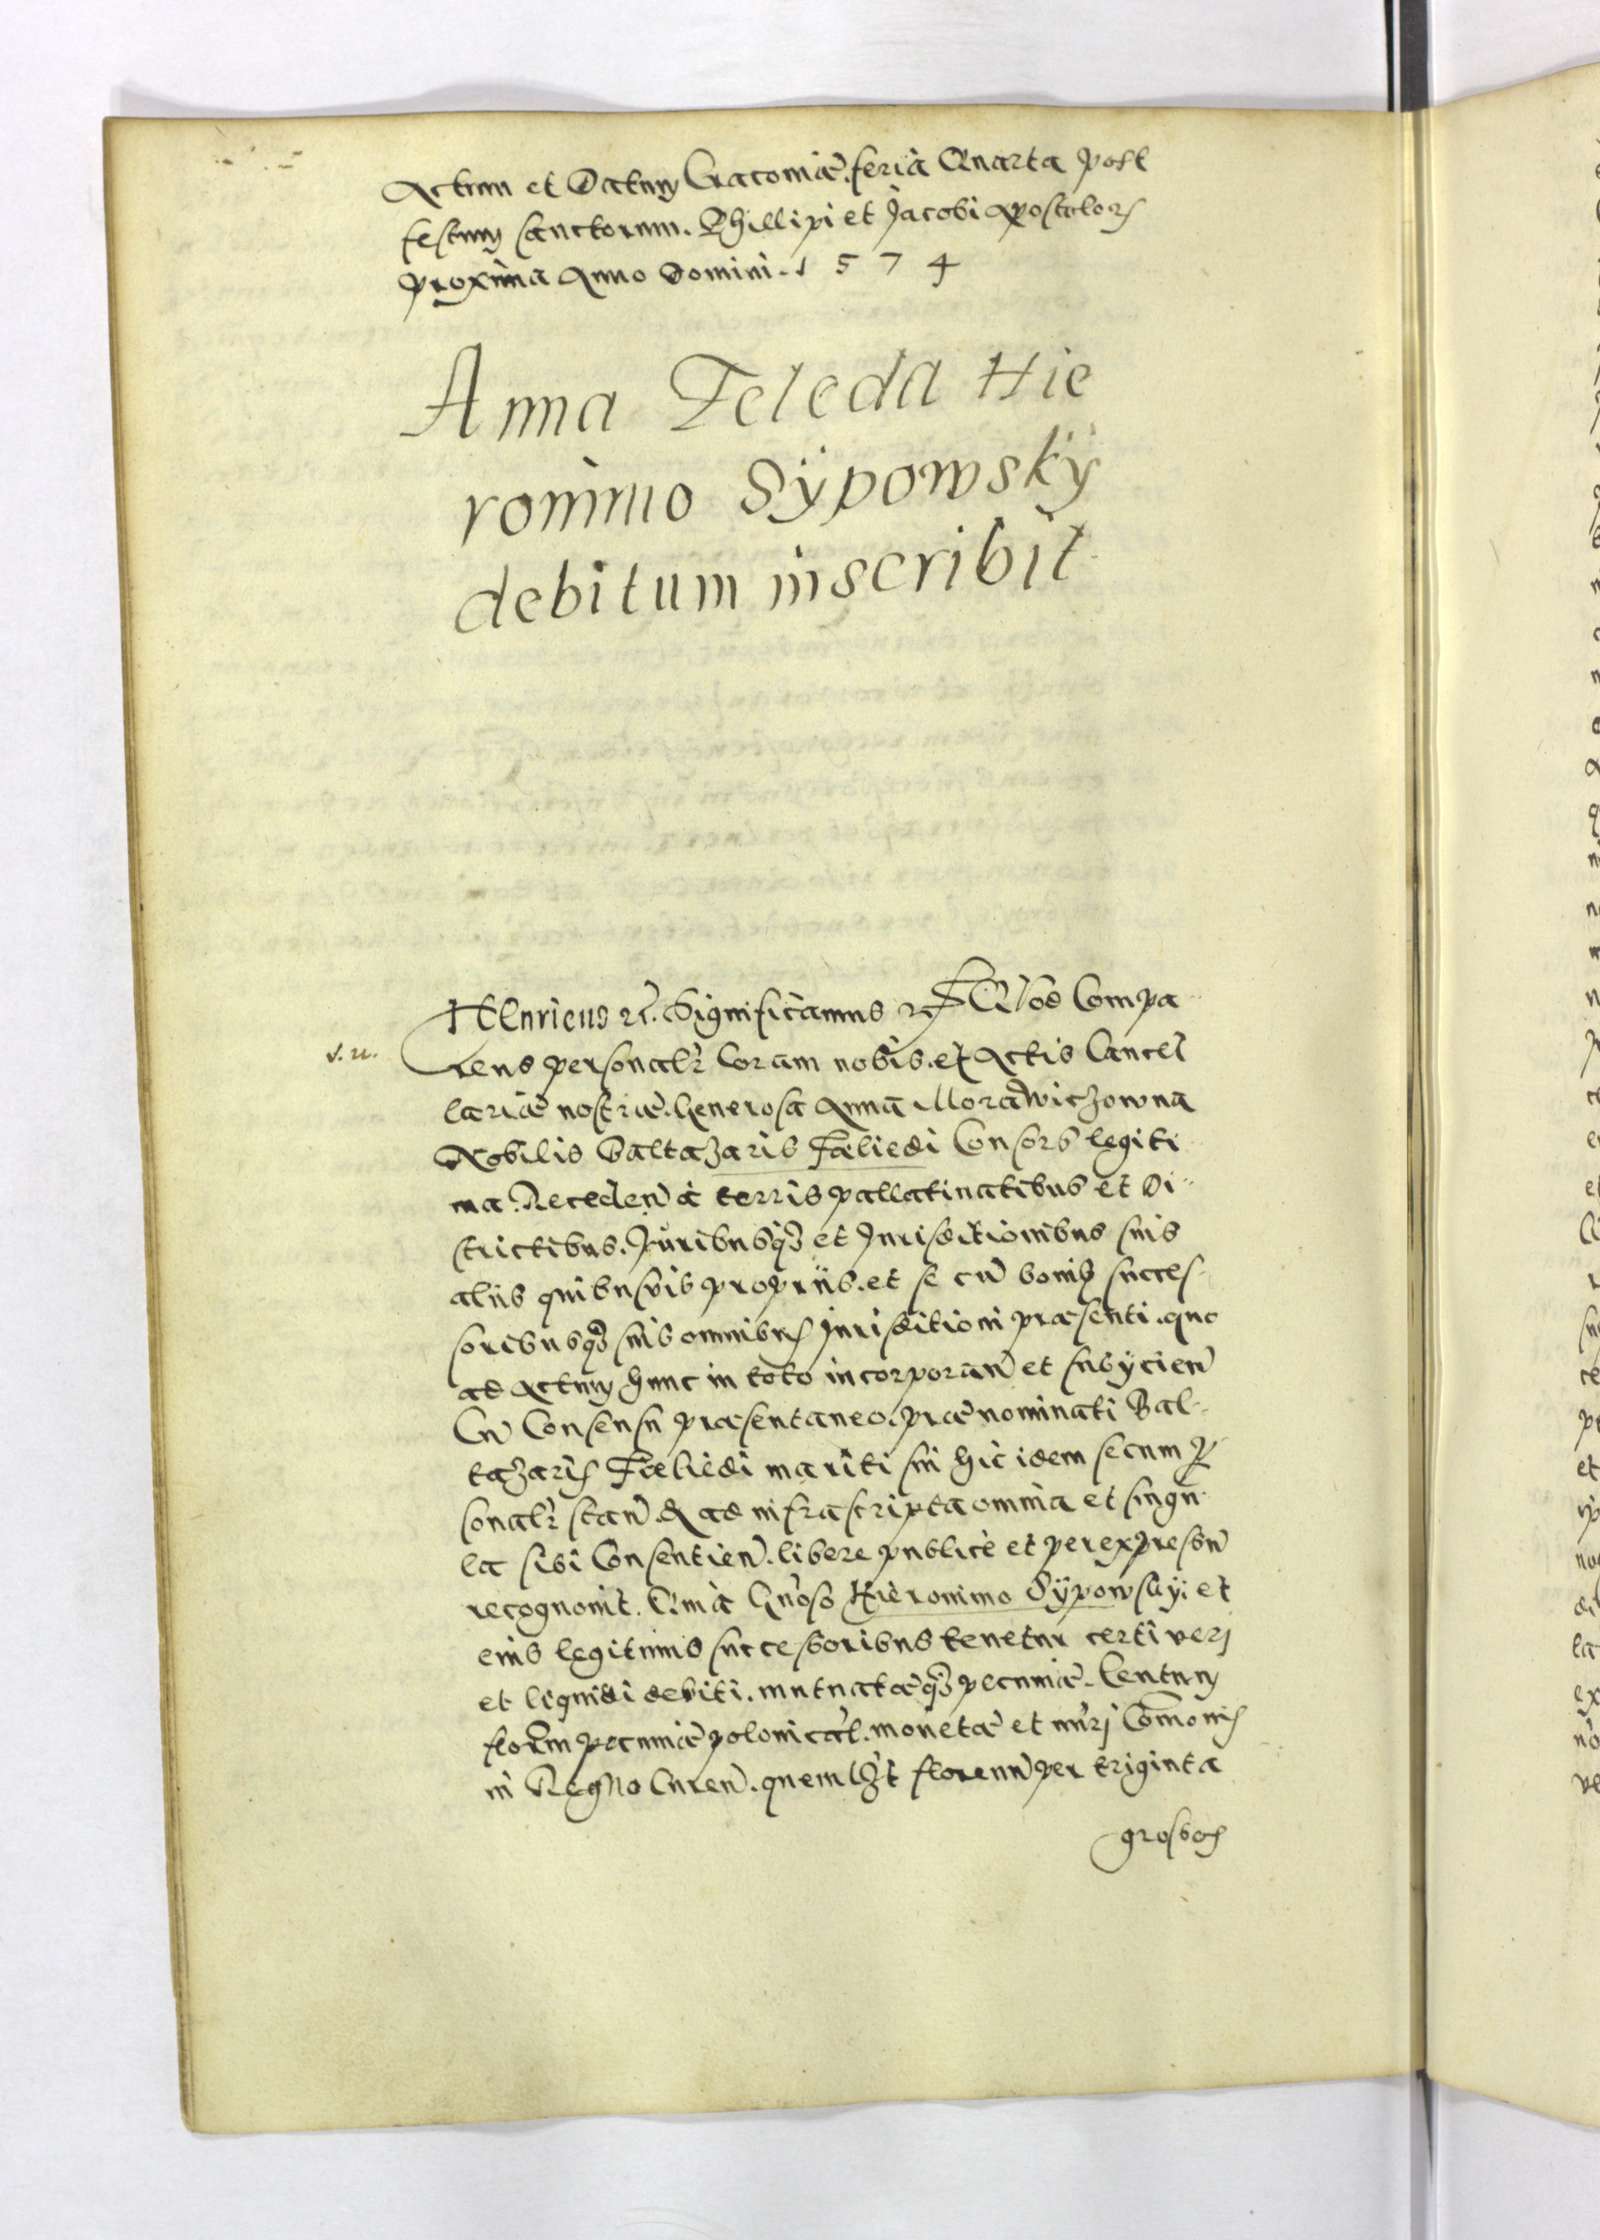 Actum et Datum Cracoviæ. feria Quarta post
festum sanctorum. Phillipi et Jacobi Apostolorꝝ
proxima Anno Domini. 1 5 7 4
Anna Feleda Hie
ronimo Sÿpowskÿ
debitum inscribit
HEnricus etc̃. Significamus etc̃ Quod Compa
rens personalr̃ Coram nobis. et Actis Cancel
v. u.
lariæ nostræ. Generosa Anna Morawiczowna
Nobilis Baltazaris Fæliedi Consors legiti
ma. Receden̄ à terris pallatinatibus et Di
strictibus. Juribusqꝫ et Jurisditionibus suis
aliis quibusvis propriis. et se cū bonis succes
soribusqꝫ suis omnibus Jurisditioni præsenti. quo
ad Actum hunc in toto incorporan̄ et subÿcien̄
Cū Consensu præsentaneo. prænominati Bal
tazaris Fæliedi mariti sui hic idem secum ꝑ
sonalr̃ stan̄. & ad infrascripta omnia et singu
la sibi Consentien̄. libere publicè et per expressū
recognovit. Quia Gn̄oso Hieronimo Sÿpowskÿ. et
eius legitimis successoribus tenetur certi veri
et liquidi debiti. mutuatæqꝫ pecuniæ. Centum
floren̄ pecuniæ polonical. monetæ et nūri Com̄unis
in Regno Curen̄. quemlꝫt florenū per triginta
grossos